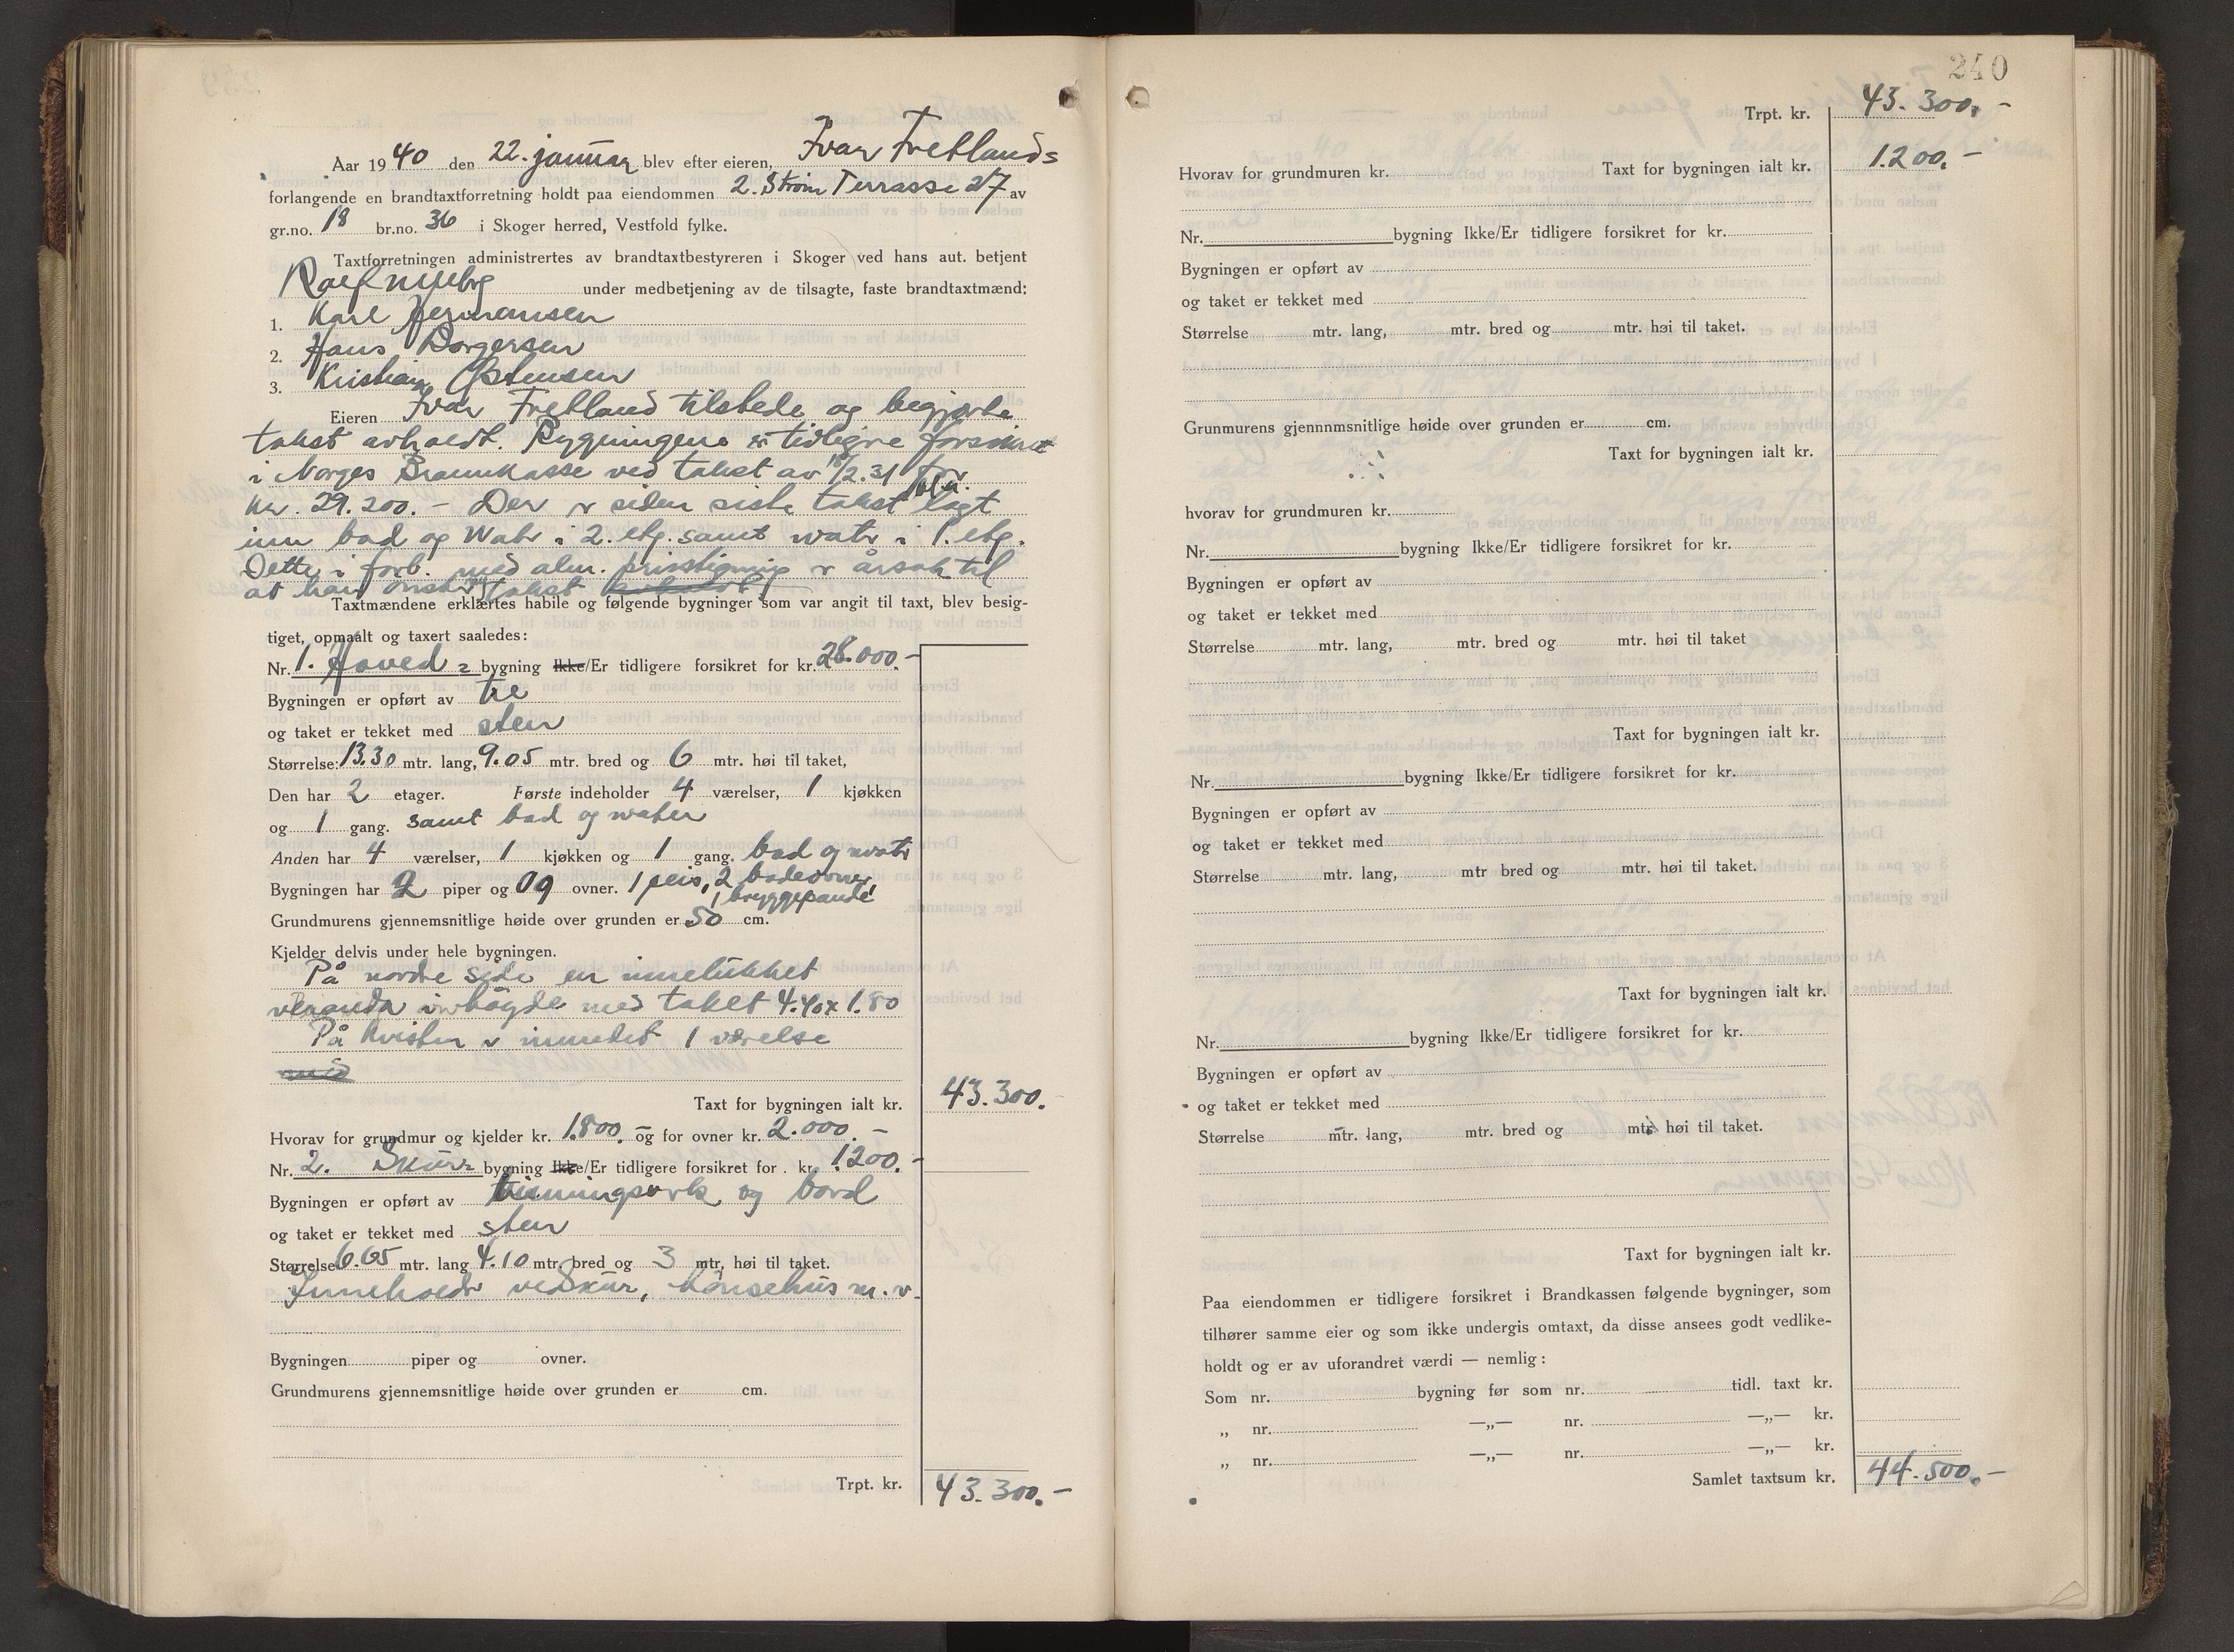 Aar 1940 den 22. januar blev efter eieren, Ivar Fretlands
forlangende en brandtaxtforretning holdt paa eiendommen 2. Strøm Terrasse 27 av
gr.no. 18 br.no. 36 i Skoger herred, Vestfold fylke.
Taxtforretningen administrertes av brandtaxtbestyreren i Skoger ved hans aut. betjent
under medbetjening av de tilsagte, faste brandtaxtmænd:
1. Karl Hermansen
2. Hans Borgersen
3. Kristian Østensen
Eieren Ivar Fretland tilstede og begjærte
takst avholdt. Bygningene er tidligere forsikret
i Norges Brannkasse ved takst av 18/2.31 for
kr. 29.200.- Der er siden siste takst bl.a. lagt
inn bad og Water i 2. etg. samt water i 1. etg.
Dette i forb. med alm. prisstigning er årsak til
at han ønsker ny takst
Taxtmændene erklærtes habile og følgende bygninger som var angit til taxt, blev besig-
tiget, opmaalt og taxert saaledes:
Nr. 1. Hoved - bygning Ikke/Er tidligere forsikret for kr. 28.000.-
Bygningen er opført av tre
og taket er tekket med sten
Størrelse: 13.30 mtr. lang, 9.05 mtr. bred og 6 mtr. høi til taket,
Den har 2 etager. Første indeholder 4 værelser, 1 kjøkken
og 1 gang. samt bad og water
Anden har 4 værelser, 1 kjøkken og 1 gang. bad og water
Bygningen har 2 piper og 09 ovner. 1 peis, 2 badeovner,
1 bryggepande
Grundmurens gjennemsnitlige høide over grunden er 50 cm.
Kjelder delvis under hele bygningen.
På nordre side en innelukket
veranda i høyde med taket 4.40 x 1.80
På kvisten er innredet 1 værelse
med
Taxt for bygningen ialt kr. 43.300.
Hvorav for grundmur og kjelder kr. 1.800.- og for ovner kr. 2.000.-
Nr. 2. Skur bygning Ikke/Er tidligere forsikret for . kr. 1.200.-
Bygningen er opført av bindingsverk og bord
og taket er tekket med sten
Størrelse 6.65 mtr. lang 4.10 mtr. bred og 3 mtr, høi til taket.
Inneholder vedskur, hønsehus m.v.
Bygningen piper og ovner.
Grundmurens gjennemsnitlige høide over grunden er cm.
Trpt. kr. 43.300.-
240
Trpt. kr. 43.300,-
Hvorav for grundmuren kr. Taxt for bygningen ialt kr. 1.200.-
Nr. bygning Ikke/Er tidligere forsikret for kr.
Bygningen er opført av
og taket er tekket med
Størrelse mtr. lang, mtr. bred og mtr. høi til taket.
Grunmurens gjennnmsnitlige høide over grunden er cm.
Taxt for bygningen ialt kr.
hvorav for grundmuren kr.
Nr. bygning Ikke/Er tidligere forsikret for kr.
Bygningen er opført av
og taket er tekket med
Størrelse mtr. lang, mtr. bred og mtr. høi til taket
Taxt for bygningen ialt kr.
Nr. bygning Ikke/Er tidligere forsikret for kr.
Bygningen er opført av
og taket er tekket med
Størrelse mtr. lang, mtr bred og mtr. høi til taket.
Taxt for bygningen ialt kr.
Nr. bygning Ikke/Er tidligere forsikret for kr.
Bygningen er opført av
og taket er tekket med
Størrelse mtr. lang, mtr. bred og mtr. høi til taket.
Taxt for bygningen ialt kr.
Paa eiendommen er tidligere forsikret i Brandkassen følgende bygninger, som
tilhører samme eier og som ikke undergis omtaxt, da disse ansees godt vedlike-
holdt og er av uforandret værdi — nemlig:
Som nr. bygning før som nr. tidl. taxt kr.
„ nr. —„— nr. —„— kr.
„ nr. —„— nr. —„— kr.
Samlet taxtsum kr. 44.500.-